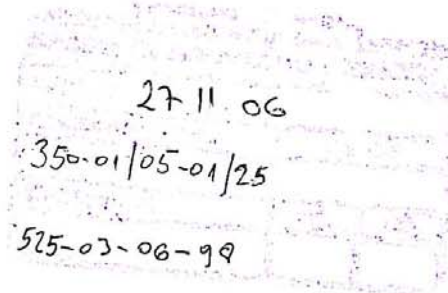 27.11.06
350-01/05-01/25
525-03-06-98